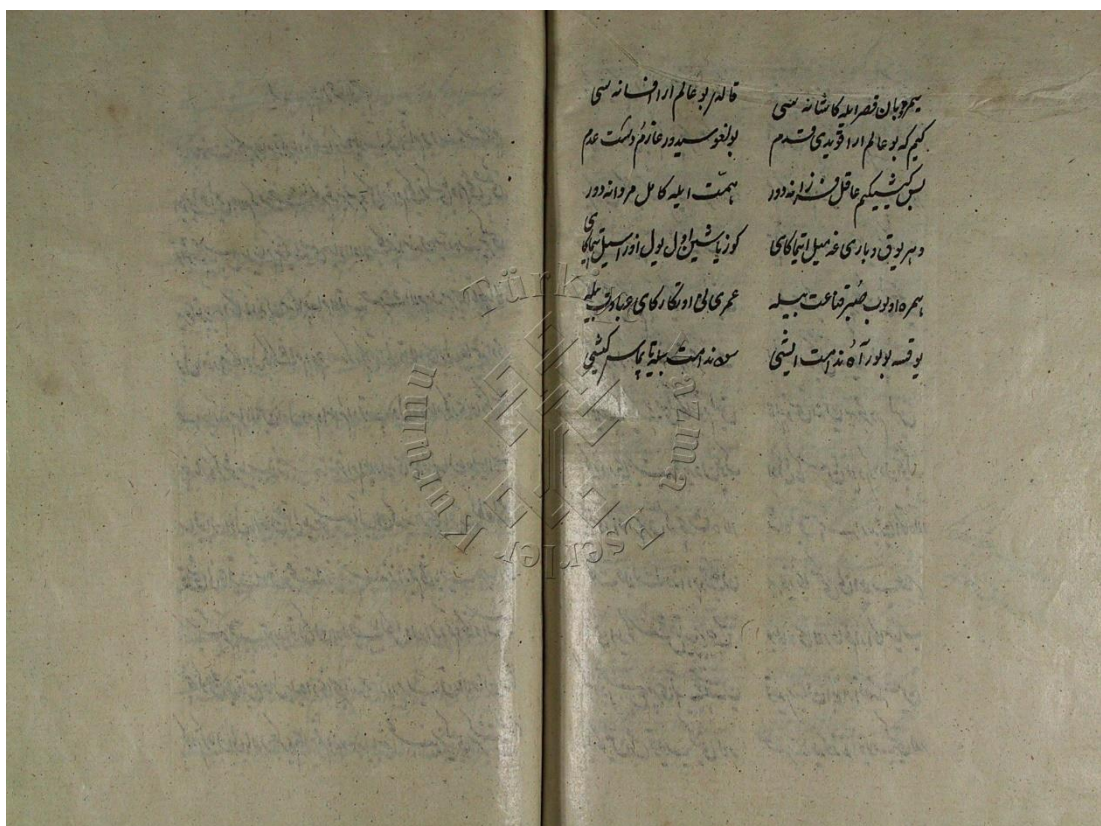 قصر ایله کاشانه سی قالور بو عالم ارا افسانه سی
کیم که بو عالم ارا قویدی قدم بولغوسیدور عازم دشت عدم
بس کیشی کیم عاقل فرزانه دور همت ایله کامل مردانه دور
دهر یوق و باری غه میل ایتماکای کوز یاشین اول یول اوزرا سیل ایتماکای
همره اولوب صبر قناعت بیله عمری اوتکارکای عبادت بیله
یوقسه بولور آه ندامت ایشی ندامت بیله تاپماس کیشی
Türkiye Yazma Eserler Kurumu